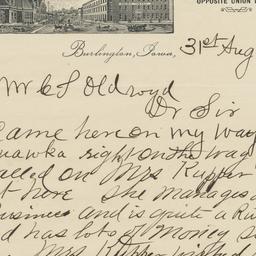 OPPOSITE UNION
Burlington, Iowa, 31st Aug
Mr C S Oldroyd
Dr Sir
Came here on my way
right on the way
called on Mrs Kupper
here she manages
Business and is quite a
has lots of Money
Mrs Kupper